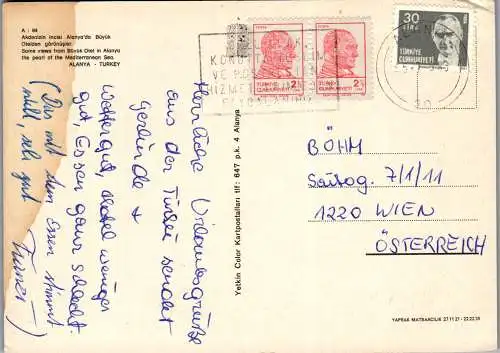 A : 64
Akdenizin incisi Alanya'da Büyük
Otelden görünüşler.
Some views from Büyük Otel in Alanya
the pearl of the Mediterranean Sea.
ALANYA - TURKEY
Herrliche Urlaubsgrüße
aus der Türkei sendet
Gerlinde +
Wetter gut, Hotel weniger
gut, Essen ganz schlecht.
(Das mit dem Essen stimmt
nicht, sehr gut
Yetkin Color Kartpostalları tlf: 647 p.k. 4 Alanya
KONUT
VE P
HİZMET
TÜRKİYE
CUMHURİYETİ
2½
TÜRKİYE
CUMHURİYETİ
2½
30
LİRA
TÜRKİYE
CUMHURİYETİ
BÖHM
7/1/11
1220 WIEN
ÖSTERREICH
YAPRAK MATBAACILIK 27 11 21 - 22 22 35